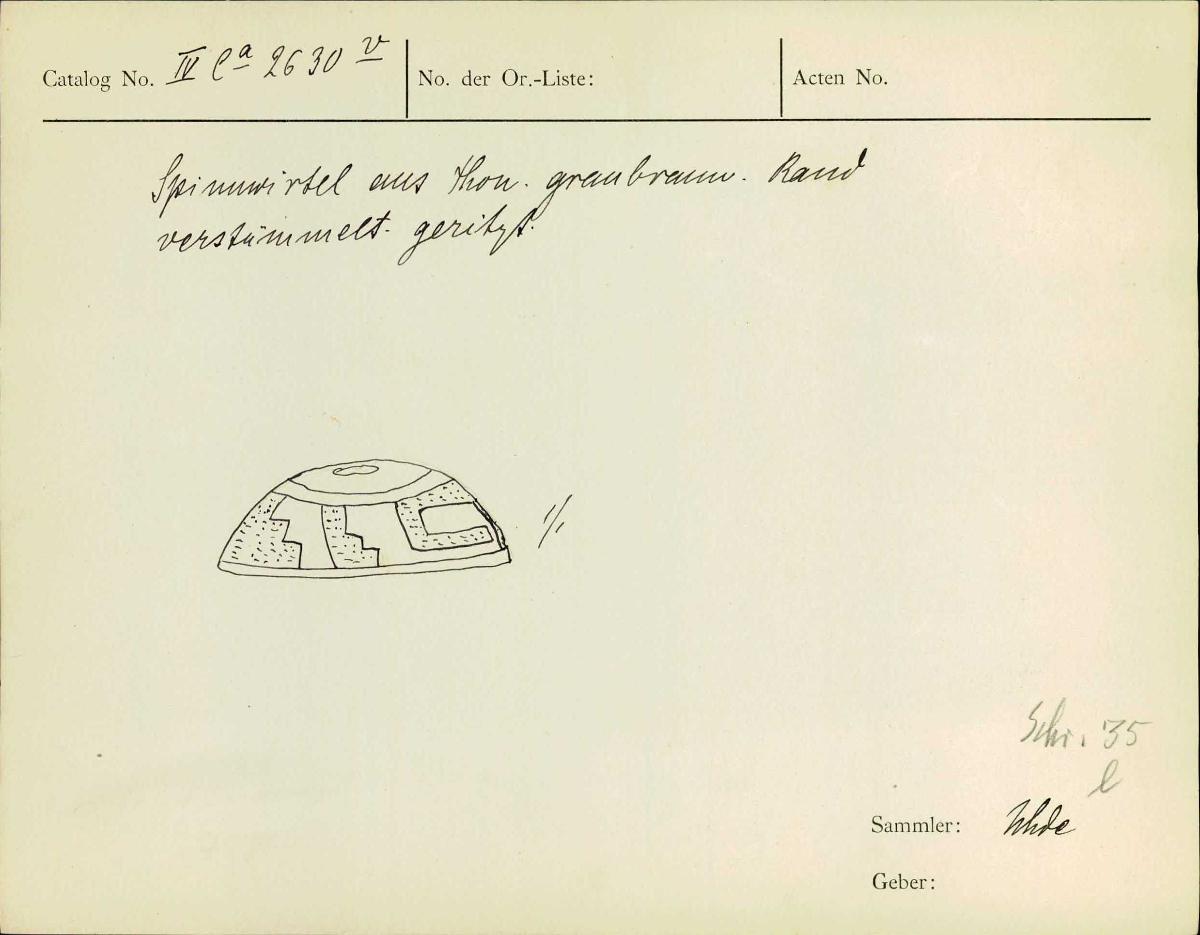 Catalog No. IV Ca 2630 v
No. der Or.-Liste:
Acten No.
Spinnwirtel aus Thon. graubraun. Rand
verstümmelt. geritzt.
1/1
Schr. 35
l
Sammler: Uhde
Geber: